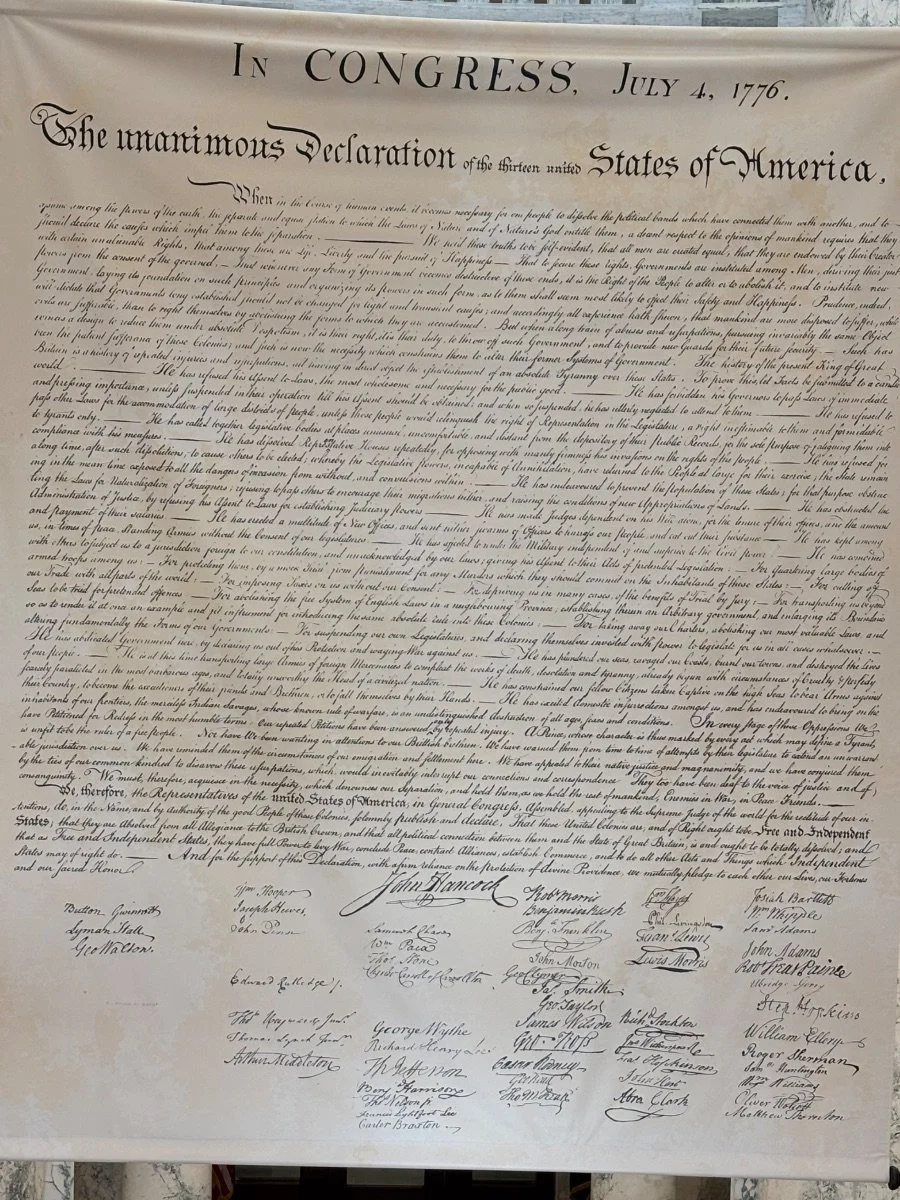 In CONGRESS, July 4, 1776.
The unanimous Declaration of the thirteen united States of America,
When in the Course of human events it becomes necessary for one people to dissolve the political bands which have connected them with another, and to
assume among the powers of the earth, the separate and equal station to which the Laws of Nature and of Nature's God entitle them, a decent respect to the opinions of mankind requires that they
should declare the causes which impel them to the separation. — We hold these truths to be self-evident, that all men are created equal, that they are endowed by their Creator
with certain unalienable Rights, that among these are Life, Liberty and the pursuit of Happiness — That to secure these rights, Governments are instituted among Men, deriving their just
powers from the consent of the governed, — That whenever any Form of Government becomes destructive of these ends, it is the Right of the People to alter or to abolish it, and to institute new
Government, laying its foundation on such principles and organizing its powers in such form, as to them shall seem most likely to effect their Safety and Happiness. Prudence, indeed,
will dictate that Governments long established should not be changed for light and transient causes; and accordingly all experience hath shewn, that mankind are more disposed to suffer, while
evils are sufferable, than to right themselves by abolishing the forms to which they are accustomed. But when a long train of abuses and usurpations, pursuing invariably the same Object
evinces a design to reduce them under absolute Despotism, it is their right, it is their duty, to throw off such Government, and to provide new Guards for their future security — Such has
been the patient sufferance of these Colonies; and such is now the necessity which constrains them to alter their former Systems of Government. The history of the present King of Great
Britain is a history of repeated injuries and usurpations, all having in direct object the establishment of an absolute Tyranny over these States. To prove this, let Facts be submitted to a candid
world. — He has refused his Assent to Laws, the most wholesome and necessary for the public good. — He has forbidden his Governors to pass Laws of immediate
and pressing importance, unless suspended in their operation till his Assent should be obtained; and when so suspended, he has utterly neglected to attend to them. — He has refused to
pass other Laws for the accommodation of large districts of people, unless those people would relinquish the right of Representation in the Legislature, a right inestimable to them and formidable
to tyrants only. — He has called together legislative bodies at places unusual, uncomfortable, and distant from the depository of their Public Records, for the sole purpose of fatiguing them into
compliance with his measures. — He has dissolved Representative Houses repeatedly, for opposing with manly firmness his invasions on the rights of the people. — He has refused for
a long time, after such dissolutions, to cause others to be elected; whereby the Legislative powers, incapable of Annihilation, have returned to the People at large for their exercise; the State remain
ing in the mean time exposed to all the dangers of invasion from without, and convulsions within. — He has endeavoured to prevent the population of these States; for that purpose obstruc
ting the Laws for Naturalization of Foreigners; refusing to pass others to encourage their migrations hither, and raising the conditions of new Appropriations of Lands. — He has obstructed the
Administration of Justice, by refusing his Assent to Laws for establishing Judiciary powers — He has made Judges dependent on his Will alone, for the tenure of their offices, and the amount
and payment of their salaries — He has erected a multitude of New Offices, and sent hither swarms of Officers to harrass our people, and eat out their substance — He has kept among
us, in times of peace, Standing Armies without the Consent of our legislatures. — He has affected to render the Military independent of and superior to the Civil power. — He has combined
with others to subject us to a jurisdiction foreign to our constitution, and unacknowledged by our laws; giving his Assent to their Acts of pretended Legislation: — For Quartering large bodies of
armed troops among us: — For protecting them, by a mock Trial, from punishment for any Murders which they should commit on the Inhabitants of these States: — For cutting off
our Trade with all parts of the world: — For imposing Taxes on us without our Consent: — For depriving us in many cases, of the benefits of Trial by Jury: — For transporting us beyond
Seas to be tried for pretended offences — For abolishing the free System of English Laws in a neighbouring Province, establishing therein an Arbitrary government, and enlarging its Boundaries
so as to render it at once an example and fit instrument for introducing the same absolute rule into these Colonies: — For taking away our Charters, abolishing our most valuable Laws, and
altering fundamentally the Forms of our Governments: — For suspending our own Legislatures, and declaring themselves invested with power to legislate for us in all cases whatsoever. —
He has abdicated Government here, by declaring us out of his Protection and waging War against us. — He has plundered our seas, ravaged our Coasts, burnt our towns, and destroyed the Lives
of our people. — He is at this time transporting large Armies of foreign Mercenaries to compleat the works of death, desolation and tyranny, already begun with circumstances of Cruelty & perfidy
scarcely paralleled in the most barbarous ages, and totally unworthy the Head of a civilized nation. — He has constrained our fellow Citizens taken Captive on the high Seas to bear Arms against
their Country, to become the executioners of their friends and Brethren, or to fall themselves by their Hands. — He has excited domestic insurrections amongst us, and has endeavoured to bring on the
inhabitants of our frontiers, the merciless Indian Savages, whose known rule of warfare, is an undistinguished destruction of all ages, sexes and conditions. In every stage of these Oppressions We
have Petitioned for Redress in the most humble terms: Our repeated Petitions have been answered only by repeated injury. A Prince, whose character is thus marked by every act which may define a Tyrant,
is unfit to be the ruler of a free people. Nor have We been wanting in attentions to our Brittish brethren. We have warned them from time to time of attempts by their legislature to extend an unwarrant
able jurisdiction over us. We have reminded them of the circumstances of our emigration and settlement here. We have appealed to their native justice and magnanimity, and we have conjured them
by the ties of our common kindred to disavow these usurpations, which, would inevitably interrupt our connections and correspondence. They too have been deaf to the voice of justice and of
consanguinity. We must, therefore, acquiesce in the necessity, which denounces our Separation, and hold them, as we hold the rest of mankind, Enemies in War, in Peace Friends. —
We, therefore, the Representatives of the united States of America, in General Congress, Assembled, appealing to the Supreme Judge of the world for the rectitude of our in-
tentions, do, in the Name, and by Authority of the good People of these Colonies, solemnly publish and declare, That these United Colonies are, and of Right ought to be Free and Independent
States; that they are Absolved from all Allegiance to the British Crown, and that all political connection between them and the State of Great Britain, is and ought to be totally dissolved; and
that as Free and Independent States, they have full Power to levy War, conclude Peace, contract Alliances, establish Commerce, and to do all other Acts and Things which Independent
States may of right do. — And for the support of this Declaration, with a firm reliance on the protection of divine Providence, we mutually pledge to each other our Lives, our Fortunes
and our sacred Honor.
John Hancock
Button Gwinnett
Lyman Hall
Geo Walton.
Wm Hooper
Joseph Hewes,
John Penn
Edward Rutledge /.
Thos Heyward Junr.
Thomas Lynch Junr.
Arthur Middleton
Samuel Chase
Wm Paca
Thos Stone
Charles Carroll of Carrollton
George Wythe
Richard Henry Lee
Th Jefferson
Benj Harrison
Thos Nelson jr.
Francis Lightfoot Lee
Carter Braxton
Robt Morris
Benjamin Rush
Benj. Franklin
John Morton
Geo Clymer
Jas. Smith
Geo. Taylor
James Wilson
Geo. Ross
Caesar Rodney
Geo Read
Tho M:Kean
Wm Floyd
Phil. Livingston
Frans. Lewis
Lewis Morris
Richd. Stockton
Jno Witherspoon
Fras. Hopkinson
John Hart
Abra Clark
Josiah Bartlett
Wm Whipple
Saml Adams
John Adams
Robt Treat Paine
Elbridge Gerry
Step. Hopkins
William Ellery
Roger Sherman
Sam'el Huntington
Wm Williams
Oliver Wolcott
Matthew Thornton